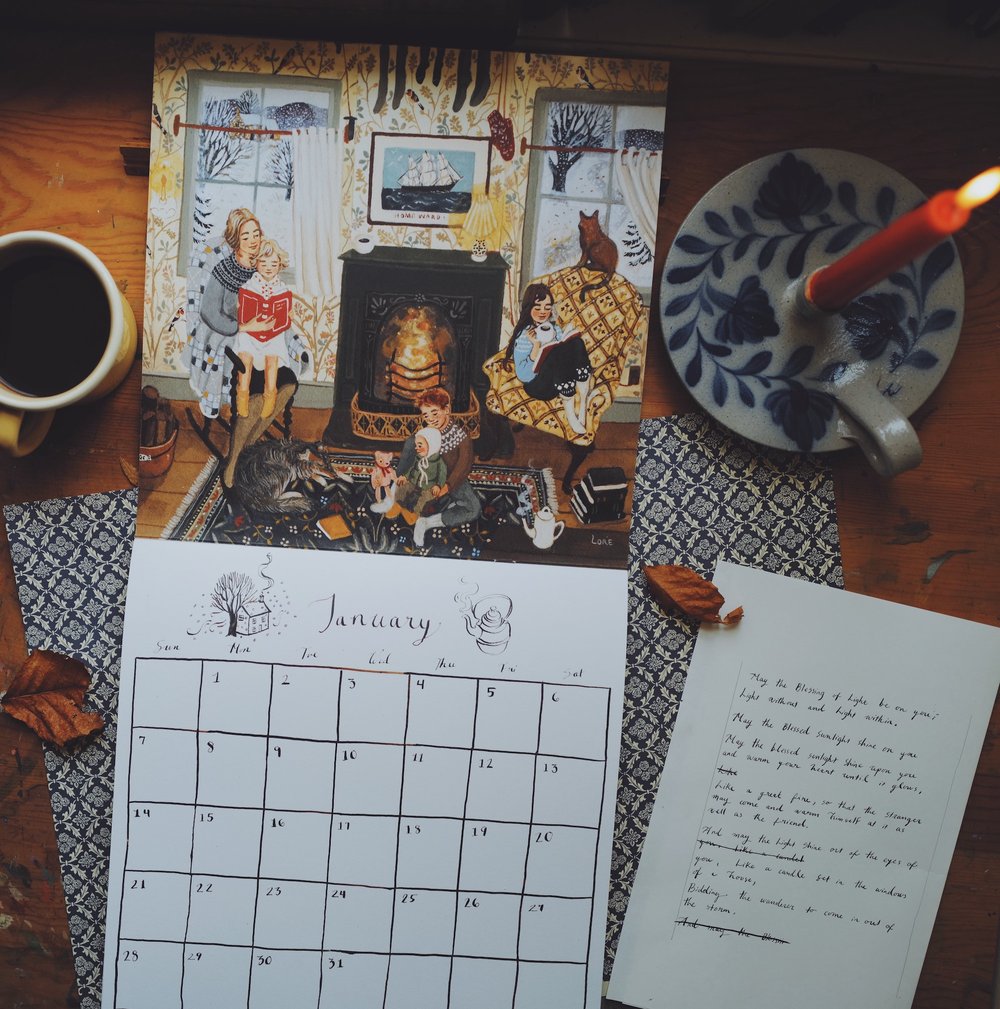 HOMEWARD
LORE
January
Sun Mon Tue Wed Thu Fri Sat
1 2 3 4 5 6
7 8 9 10 11 12 13
14 15 16 17 18 19 20
21 22 23 24 25 26 27
28 29 30 31
May the Blessing of Light be on you;
light without and light within.
May the Blessed sunlight shine on you
May the blessed sunlight shine upon you
and warm your heart until it glows,
Like
Like a great fire, so that the stranger
may come and warm himself at it as
well as the friend.
And may the light shine out of the eyes of
you. Like a candel
you, Like a candle set in the windows
of a house,
Bidding the wanderer to come in out of
the storm.
And may the Bless